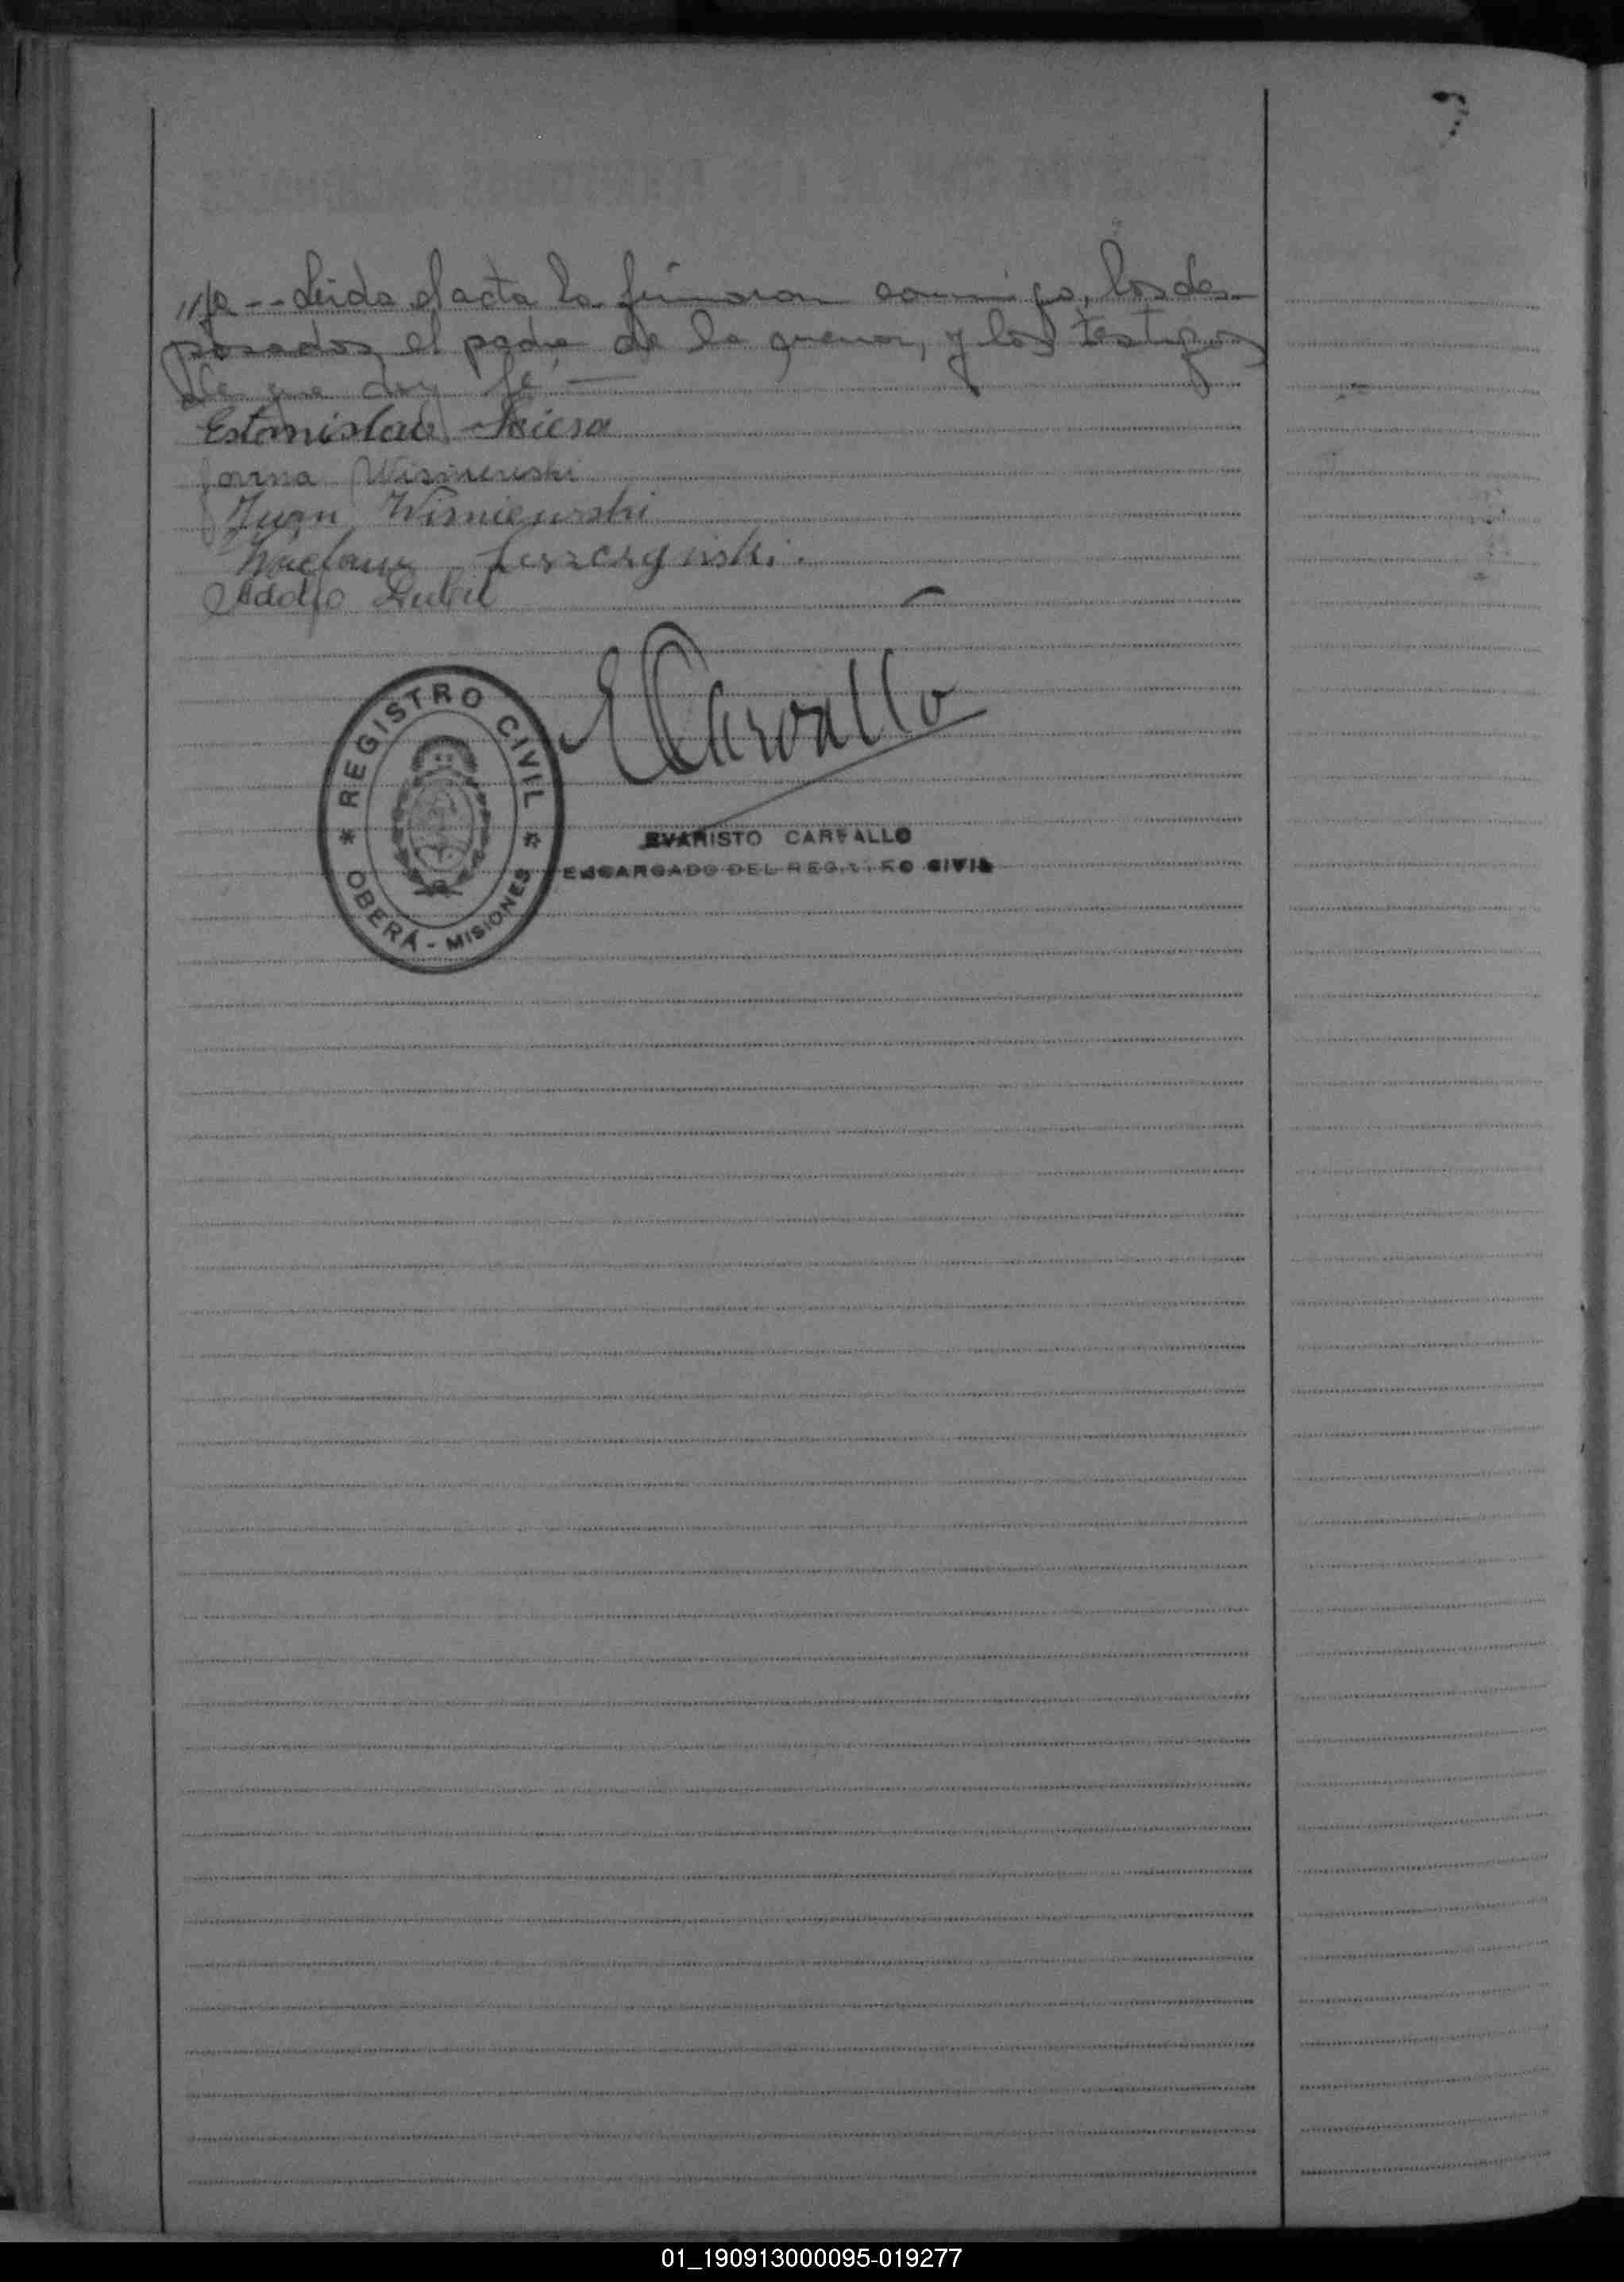 Leida el acta la firmaron conmigo, los des-
posados, el padre de la menor, y los testigos
De que doy fé,—
Estanislao
Wisniewski
Juan Wisniewski
Adolfo
ECarvallo
REGISTRO CIVIL
OBERÁ - MISIONES
EVARISTO CARVALLO
ENCARGADO DEL REGISTRO CIVIL
01_190913000095-019277